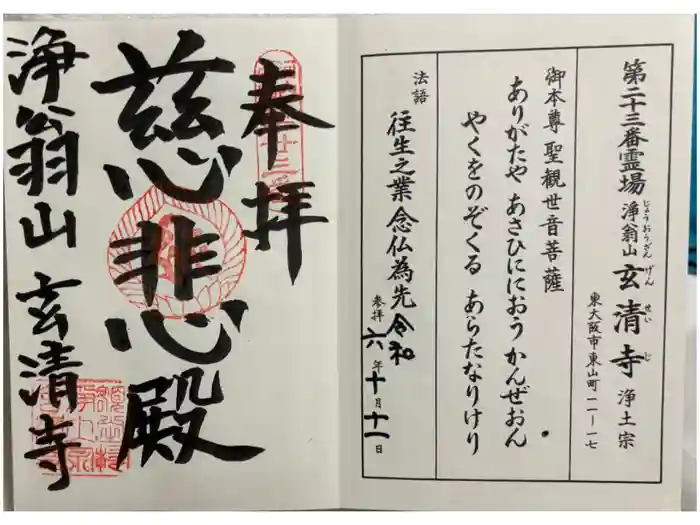 第二十三番霊場 浄翁山 玄清寺 浄土宗
じょうおうざん げんせいじ
東大阪市東山町一一ー一七
御本尊 聖観世音菩薩
ありがたや あさひににおう かんぜおん
やくをのぞくる あらたなりけり
法語
往生之業 念仏為先
参拝 令和六年十月十一日
奉拝
慈悲殿
浄翁山 玄清寺